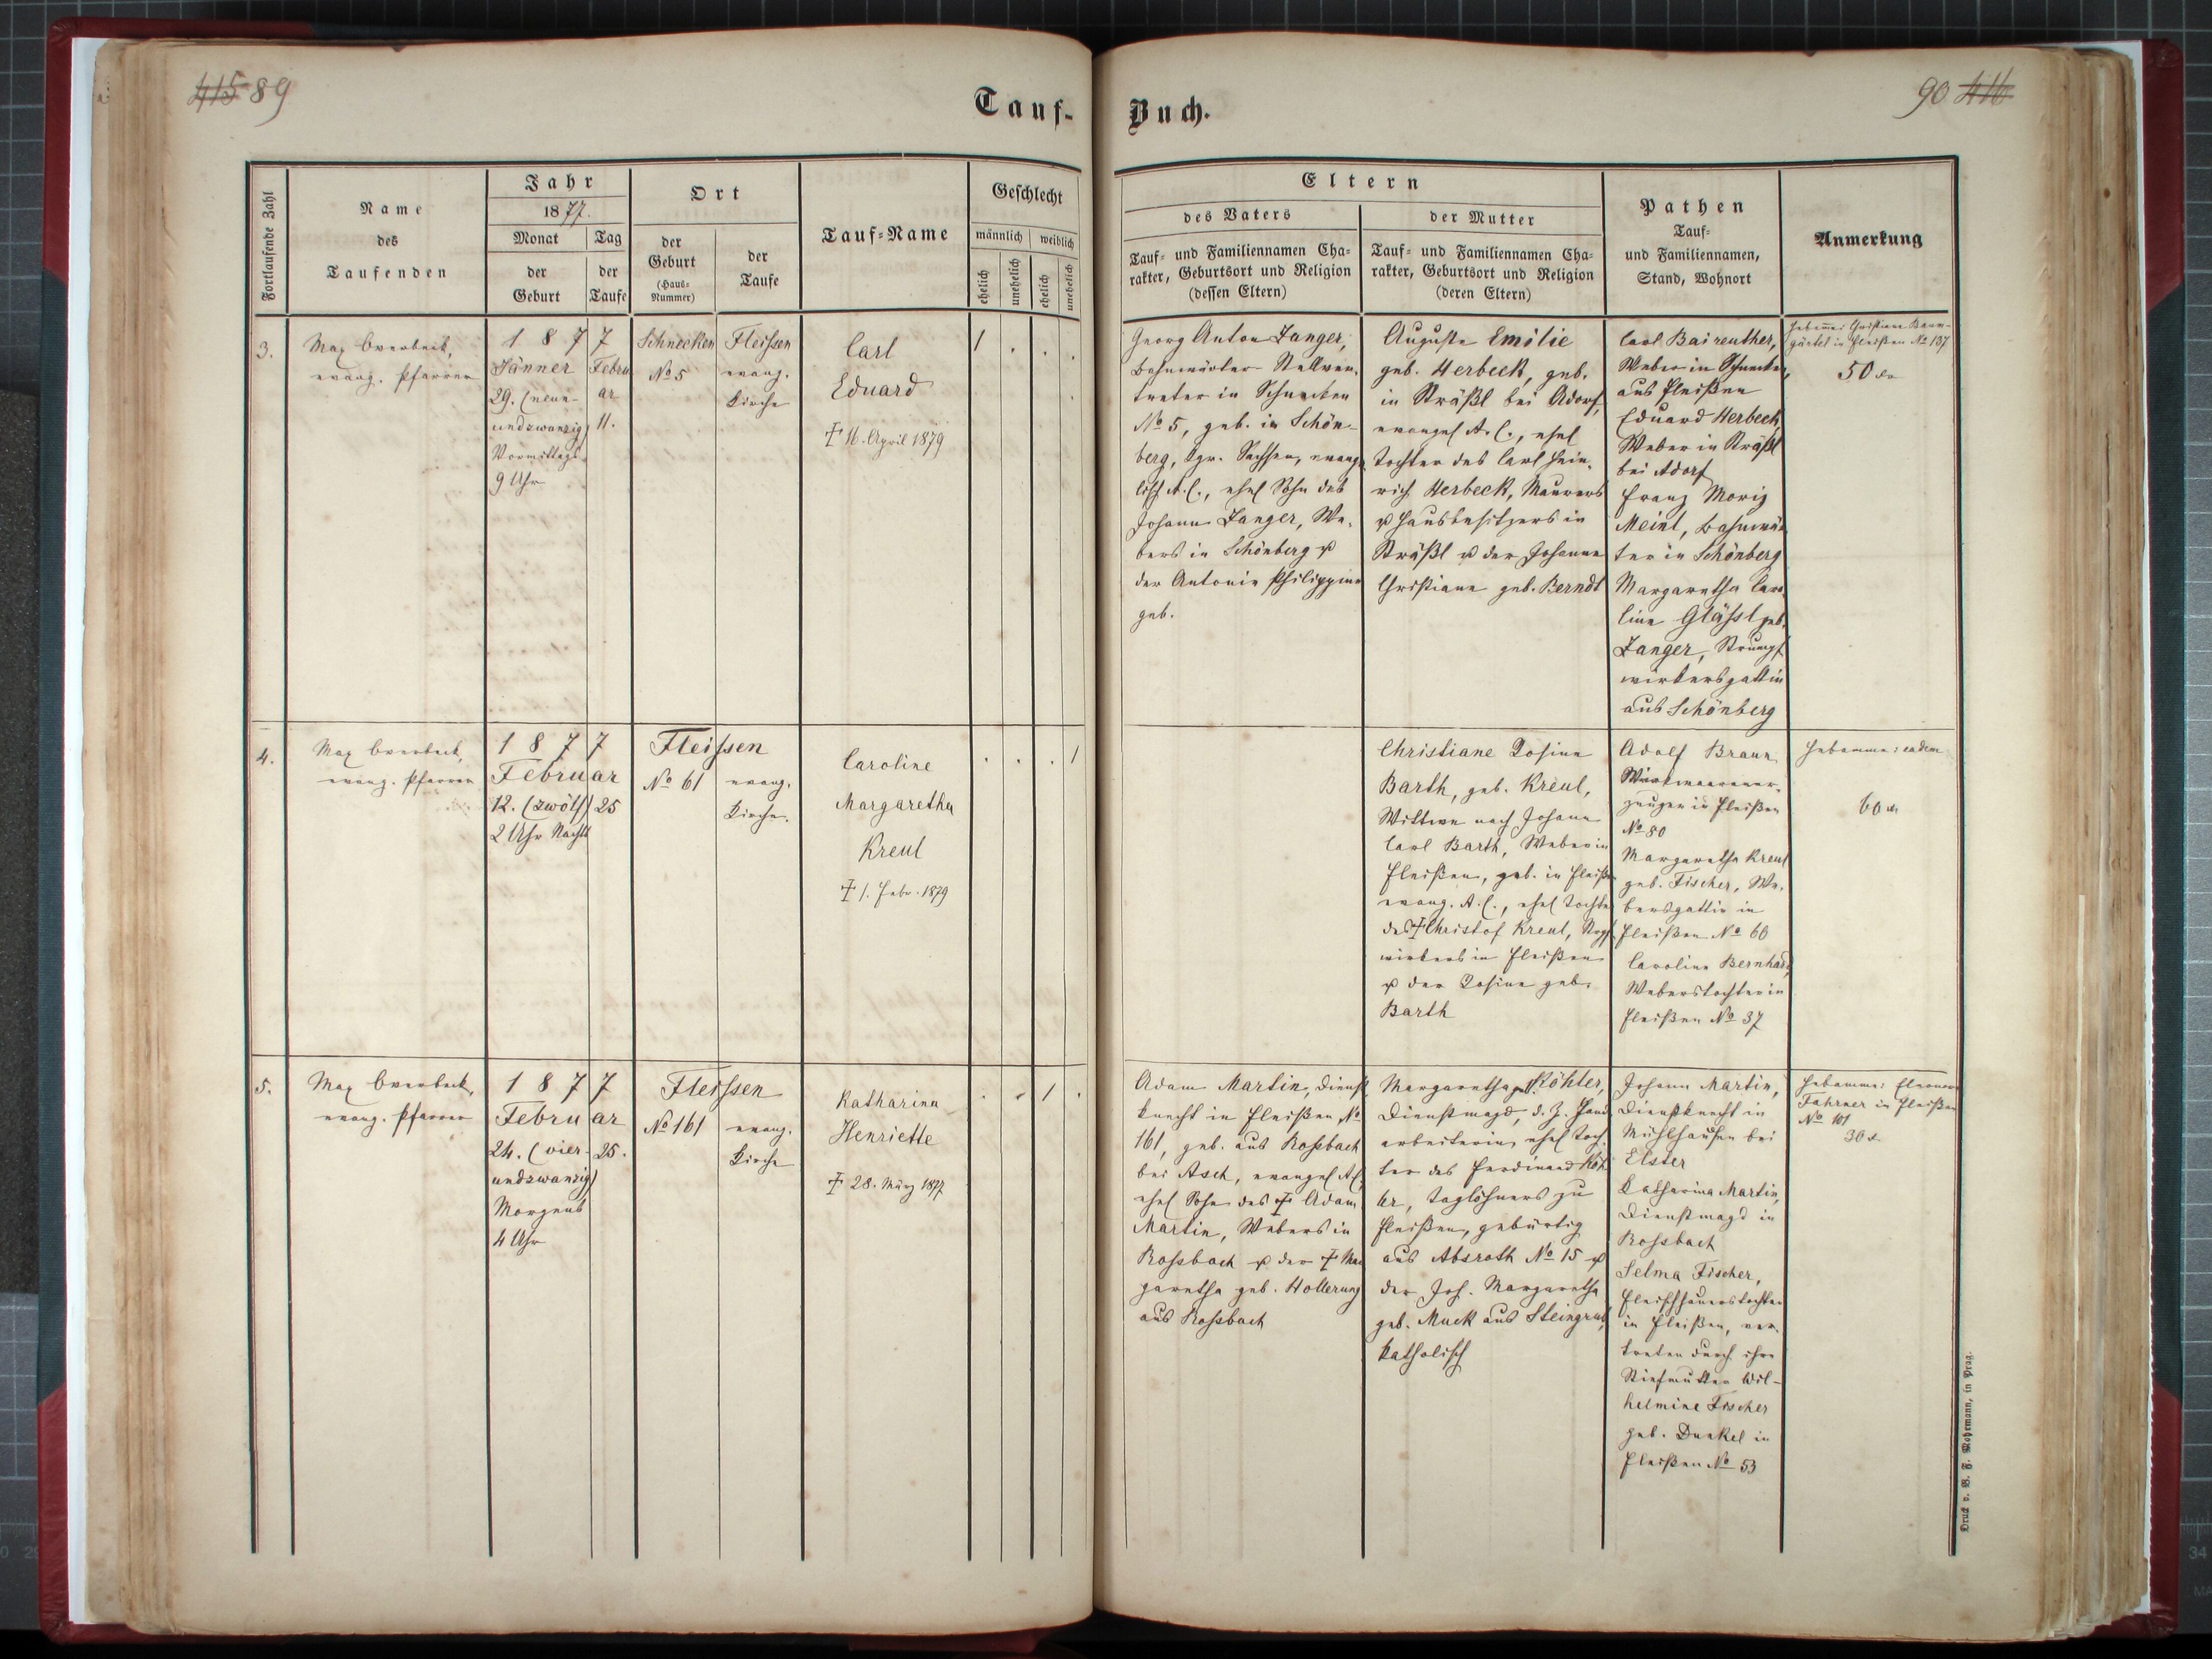 415 89
Tauf-
Fortlaufende Zahl
Name
des
Taufenden
Jahr
1877.
Monat
der
Geburt
Tag
der
Taufe
Ort
der
Geburt
(Haus-
Nummer)
der
Taufe
Tauf-Name
Geschlecht
männlich
weiblich
ehelich
unehelich
ehelich
unehelich
3.
Max Overbeck,
evang. Pfarrer
1877
Jänner
29. (neun-
undzwanzig)
Vormittags
9 Uhr
Febru
ar
11.
Schnecken
No 5
Fleissen
evang.
Kirche
Carl
Eduard
† 16. April 1879
1 . . .
4.
Max Overbeck,
evang. Pfarrer
1877
Februar
12. (zwölf) 25
2 Uhr Nachts
Fleissen
No 61
evang.
Kirche.
Caroline
Margaretha
Kreul
† 1. Febr. 1879
. . . 1
5.
Max Overbeck,
evang. Pfarrer
1877
Februar
24. (vier- 25.
undzwanzig)
Morgens
4 Uhr
Fleissen
No 161
evang.
Kirche
Katharina
Henriette
† 28. März 1877
. . 1 .
90 416
Buch.
Eltern
des Vaters
Tauf- und Familiennamen Cha-
rakter, Geburtsort und Religion
(dessen Eltern)
der Mutter
Tauf- und Familiennamen Cha-
rakter, Geburtsort und Religion
(deren Eltern)
Pathen
Tauf-
und Familiennamen,
Stand, Wohnort
Anmerkung
Georg Anton Zanger,
Bahnwärter Stellver-
treter in Schnecken
No 5, geb. in Schön-
berg, Kgr. Sachsen, evange
lisch A. C., ehel Sohn des
Johann Zanger, We-
bers in Schönberg u
der Antonie Philippine
geb.
Auguste Emilie
geb. Herbeck, geb.
in Sträßl bei Adorf,
evangel A. C., ehel
Tochter des Carl Hein-
rich Herbeck, Maurers
u Hausbesitzers in
Sträßl u der Johanne
Christiane geb. Berndt
Carl Baireuther,
Weber in Schnecken,
aus Fleißen
Eduard Herbeck,
Weber in Sträßl
bei Adorf
Franz Moriz
Meinl, Bahnwär
ter in Schönberg
Margaretha Caro
line Glässl geb.
Zanger, Strumpf
wirkersgattin
aus Schönberg
Hebamme: Christiane Baum-
gärtel in Fleißen No 137
50
Christiane Rosine
Barth, geb. Kreul,
Wittwe nach Johann
Carl Barth, Weber in
Fleißen, geb. in Fleiße
evang. A. C., ehel Tochter
des † Christof Kreul,
wirkers in Fleißen
u der Rosine geb.
Barth
Adolf Braun
Wirkwaarener-
zeuger in Fleißen
No 80
Margaretha Kreul
geb. Fischer, We-
bersgattin in
Fleißen No 60
Caroline Bernhard,
Weberstochter in
Fleißen No 37
Hebamme: eadem
60
Adam Martin, Dienst
knecht in Fleißen No
161, geb. aus Rossbach
bei Asch, evangel A C,
ehel Sohn des † Adam
Martin, Webers in
Rossbach u der † Mar
garetha geb. Hollerung
aus Rossbach
Margaretha geb. Köhler,
Dienstmagd, d. Z. Hand
arbeiterin, ehel Toch-
ter des Ferdinand Köh
ler, Taglöhners zu
Fleißen, gebürtig
aus Absroth No 15 u
der Joh. Margaretha
geb. Muck aus Steingrub,
katholisch
Johann Martin,
Dienstknecht in
Mühlhausen bei
Elster
Katharina Martin,
Dienstmagd in
Rossbach
Selma Fischer,
Fleischhauerstochter
in Fleißen, ver-
treten durch ihre
Stiefmutter Wil-
helmine Fischer
geb. Dunkel in
Fleißen No 53
Hebamme: Eleonore
Fahrner in Fleißen
No 101
30
Druck v. B. F. Mohrmann, in Prag.